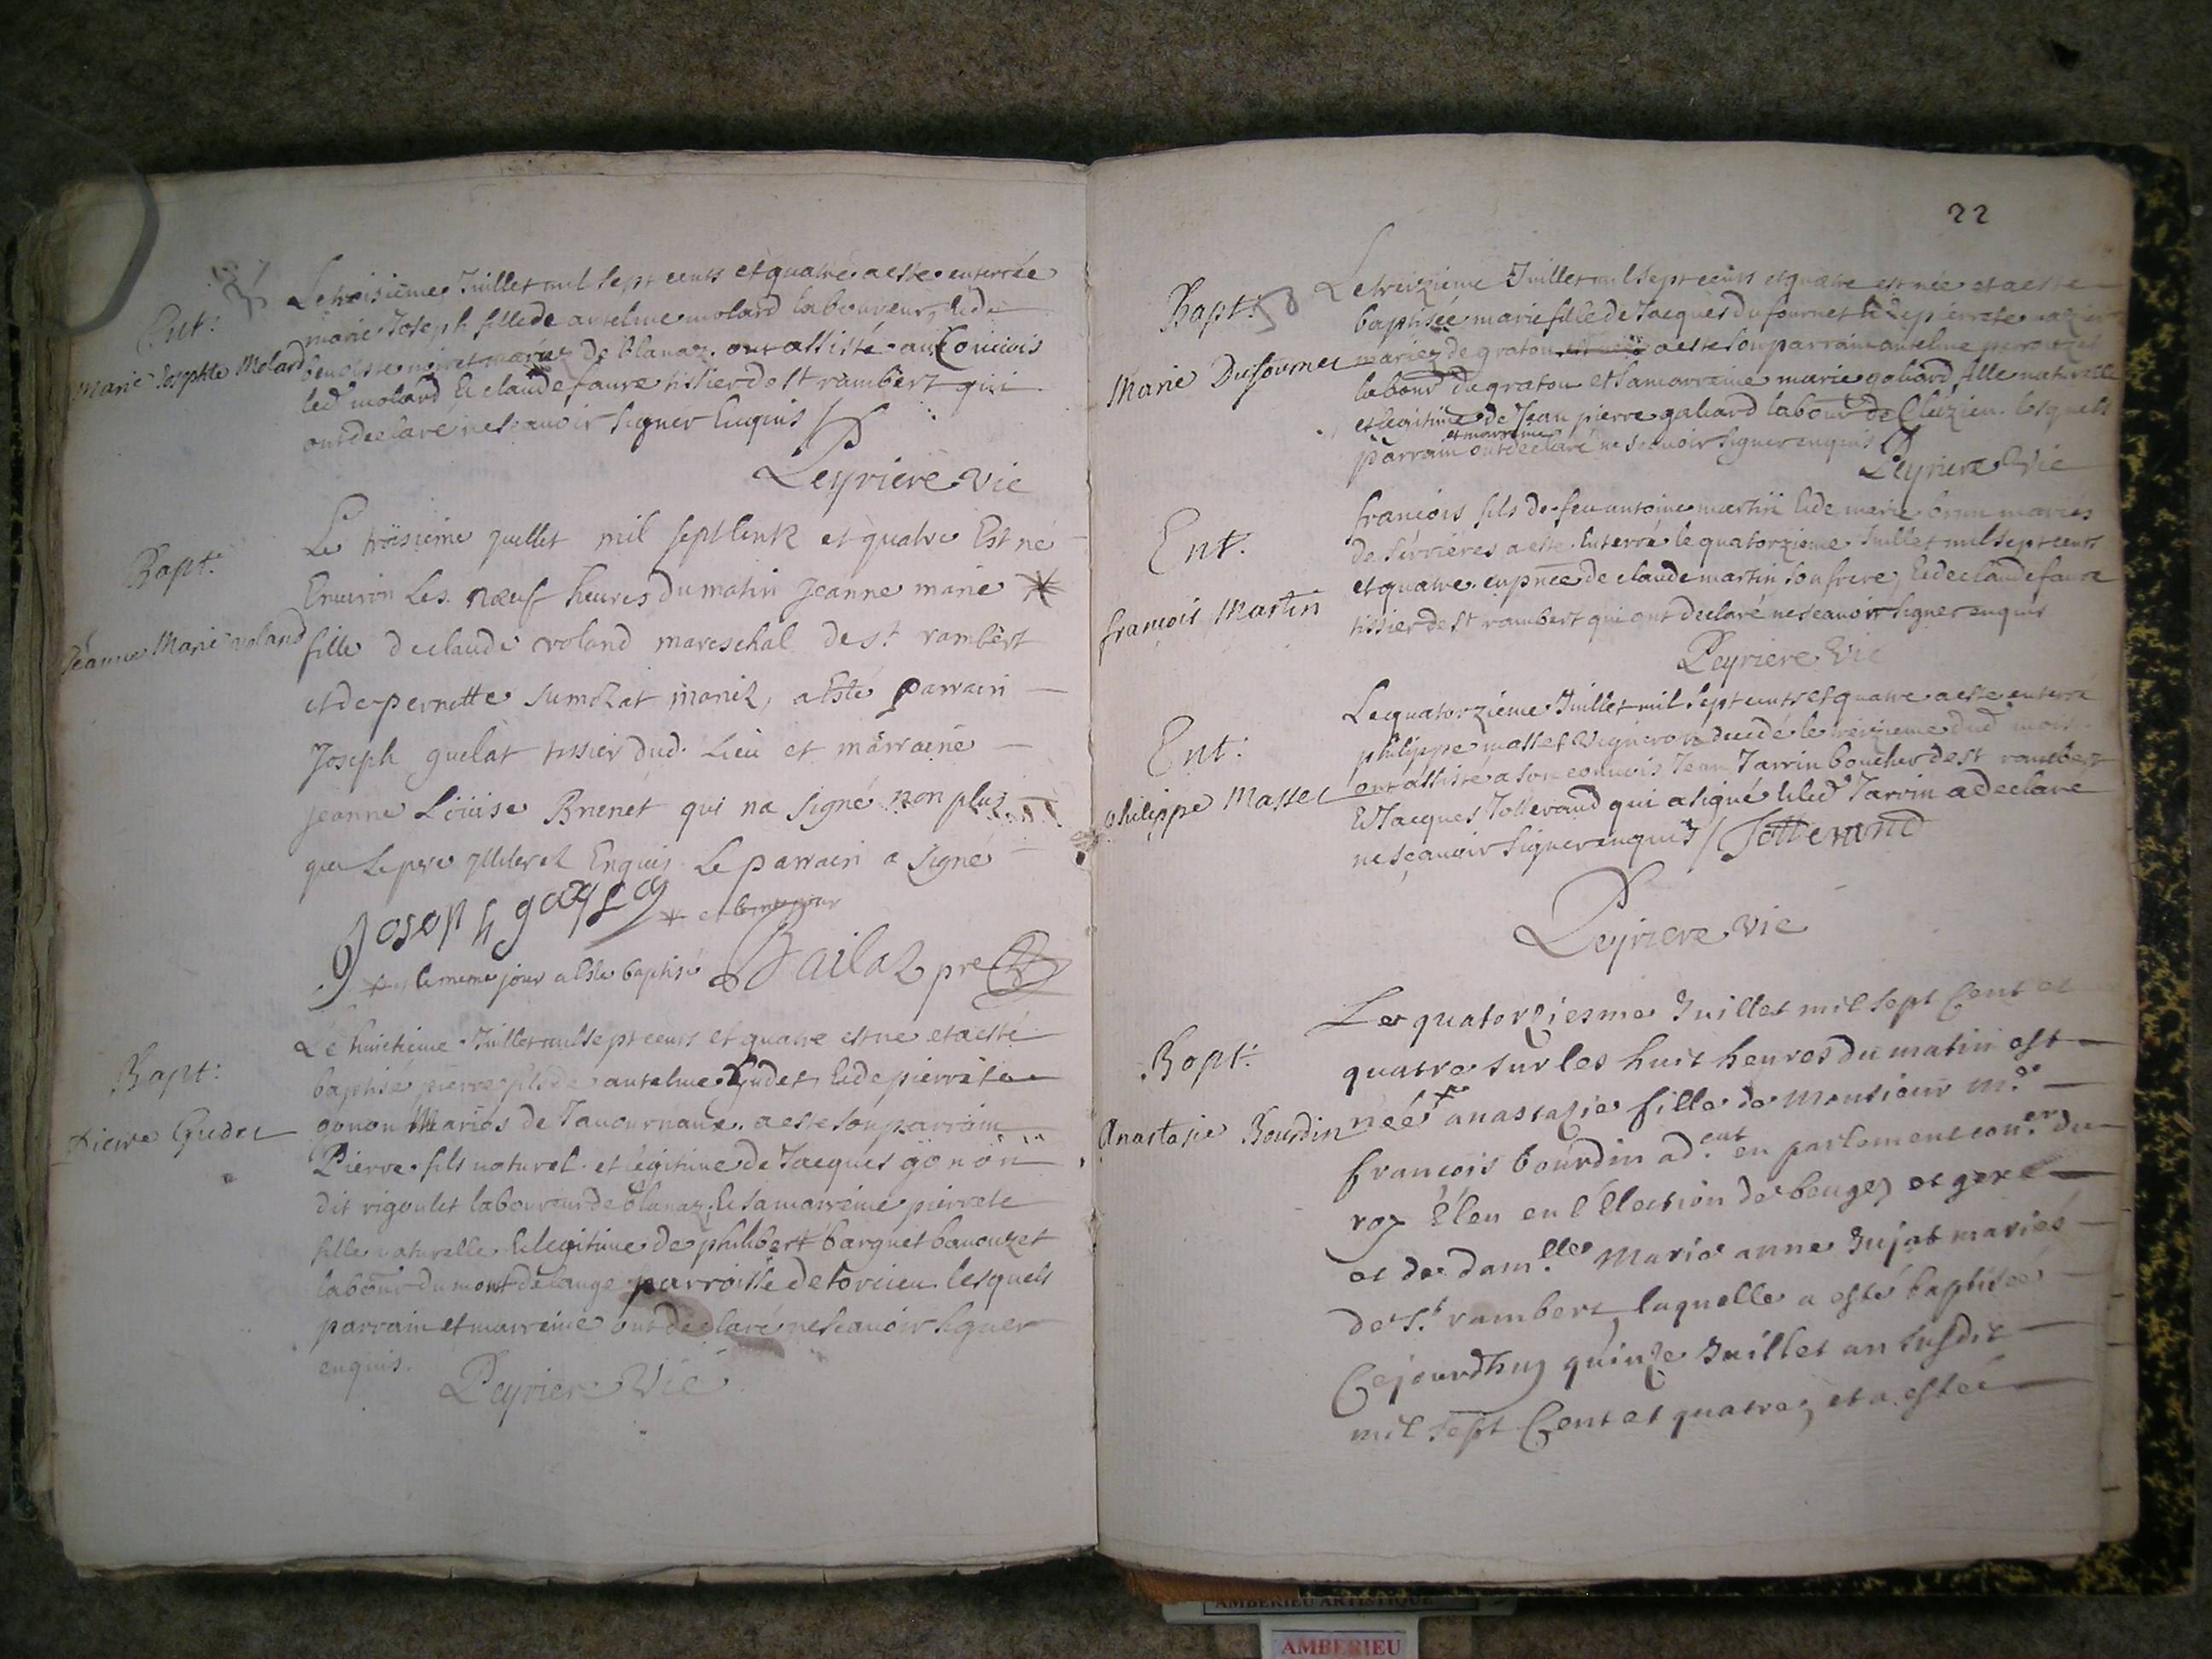 Ent:
Marie Josephte Molard
Le troisieme Juillet mil sept cents et quatre a esté enterrée
marie Joseph fille de antelme molard laboureur, & de
benoiste noiret mariez de blanaz. ont assisté au Convois
led molard & claude faure tissier de st rambert qui
ont declaré ne scavoir signer Enquis
Leyriere vic
Bapt:
Jeanne Marie voland
Le troisieme juillet mil sept Centz et quatre Est né
Environ Les nœuf heures du matin Jeanne marie *
fille de claude voland mareschal de st rambert
et de pernette mariez, a Esté parrain
Joseph guelat tissier dud. Lieu et marraine
jeanne Loüise Brunet qui na signé non plus
que le pere Enquis Le parrain a signé
Joseph
* et le meme jour
* le meme jour a Esté baptisé Bailaz pre
Bapt:
Pierre Gudet
Le huictieme Juillet mil sept cents et quatre est né et a esté
baptisé pierre fils de antelme Gudet, & de pierrete
gonon Mariés de Tavournaux. a esté son parrain
Pierre fils naturel et légitime de Jacques gonon
dit rigoulet laboureur de blanaz, & sa marreine pierrete
fille naturelle & legitime de philibert barguet bavouzet
labour du mont de lange parroisse de torcieu lesquels
parrain et marreine ont declaré ne scavoir signer
enquis.
Leyriere Vic
22
Bapt: 58
Marie Dufournet
Le treizieme Juillet mil sept cents et quatre est née et a esté
baptisée marie fille de Jacques du fournet & de pierrete
mariez de graton a esté son parrain antelme perouzet
labour du graton et sa marreine marie galiard fille naturelle
et legitime de Jean pierre galiard labour de Cleizieu. lesquels
et marreine
parrain ont declaré ne scavoir signer enquis
Leyriere Vic
Ent.
françois Martin
francois fils de feu antoine martin & de marie brun mariés
de serrieres a esté Enterré le quatorzieme Juillet mil sept cents
et quatre. en pnce de claude martin son frere, & de claude faure
tissier de st rambert qui ont declaré ne scavoir signer enquis
Leyriere Vic
Ent:
philippe Masset
Le quatorzieme Juillet mil sept cents et quatre a esté enterré
philippe masset vigneron decedé le treizieme dud mois
ont assisté a son convois Jean Jarrin boucher de st rambert
& Jacques Tollerand qui a signé & led Jarrin a declaré
ne sçavoir signer enquis / Tollerand
Leyriere vic
Bapt:
Anastasie Bourdin
Le quatorziesme Juillet mil sept Cent et
quatre sur les huit heures du matin est
née anastazie fille de Monsieur Me
francois bourdin ad.cat en parlement con.er du
roy Éleu en l'Ellection de beugey et gexe
et de dam.lle Marie anne Jujat mariés
de St rambert, laquelle a esté baptisée
Cejourdhuy quinze Juillet an susdit
mil sept Cent et quatre, et a esté
AMBERIEU ARTISTIQUE
AMBERIEU